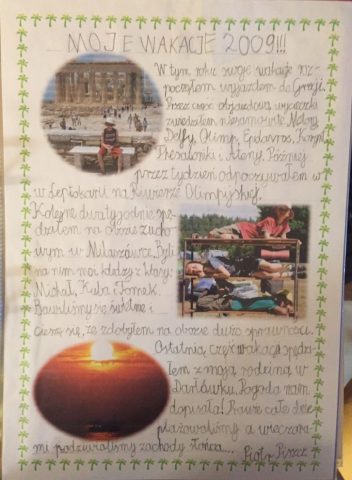 MOJE WAKACJE 2009!!!
W tym roku swoje wakacje roz-
począłem wyjazdem do Grecji.
Przez czas objazdowej wycieczki
zwiedziłem niesamowite Meteory,
Delfy, Olimp, Epidavros, Korynt
Thesaloniki i Ateny. Później
przez tydzień odpoczywałem w
w Leptokarii na Riwierze Olimpijskiej.
Kolejne dwa tygodnie spę-
dzałem na obozie zucho-
wym w Milanówce. Byli
na nim moi koledzy z klasy:
Michał, Kuba i Tomek.
Bawiliśmy się świetnie i
cieszę się, że zdobyłem na obozie dużo sprawności.
Ostatnią część wakacji spędzi-
łem z moją rodziną w
Darłówku. Pogoda nam
dopisała! Prawie całe dnie
plażowaliśmy a wieczora-
mi podziwialiśmy zachody słońca....
Piotr